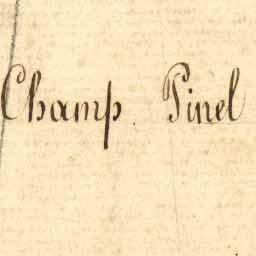 Champ Pinel